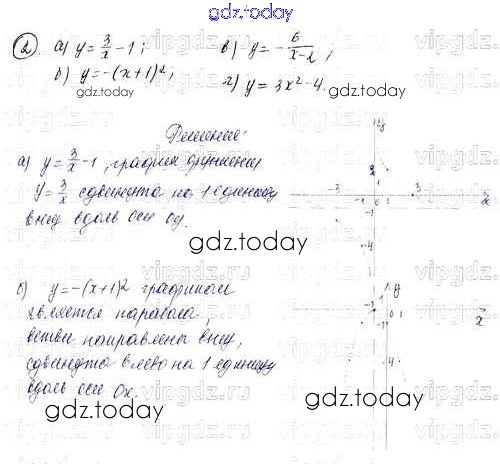 gdz.today
2 а) y = 3/x − 1; в) y = − 6/(x−2);
б) y = −(x+1)²; г) y = 3x² − 4.
gdz.today
gdz.today
Решение:
а) y = 3/x − 1, график функции
y = 3/x сдвинута на 1 единицу
вниз вдоль оси Oy.
gdz.today
б) y = −(x+1)² графиком
является парабола,
ветви направлены вниз,
сдвинута влево на 1 единицу
вдоль оси Ox.
gdz.today
gdz.today
y
2
1
−3 −1 0 1 3 x
−1
−4
y
−1 0 1 x
−1
−4
vipgdz.ru